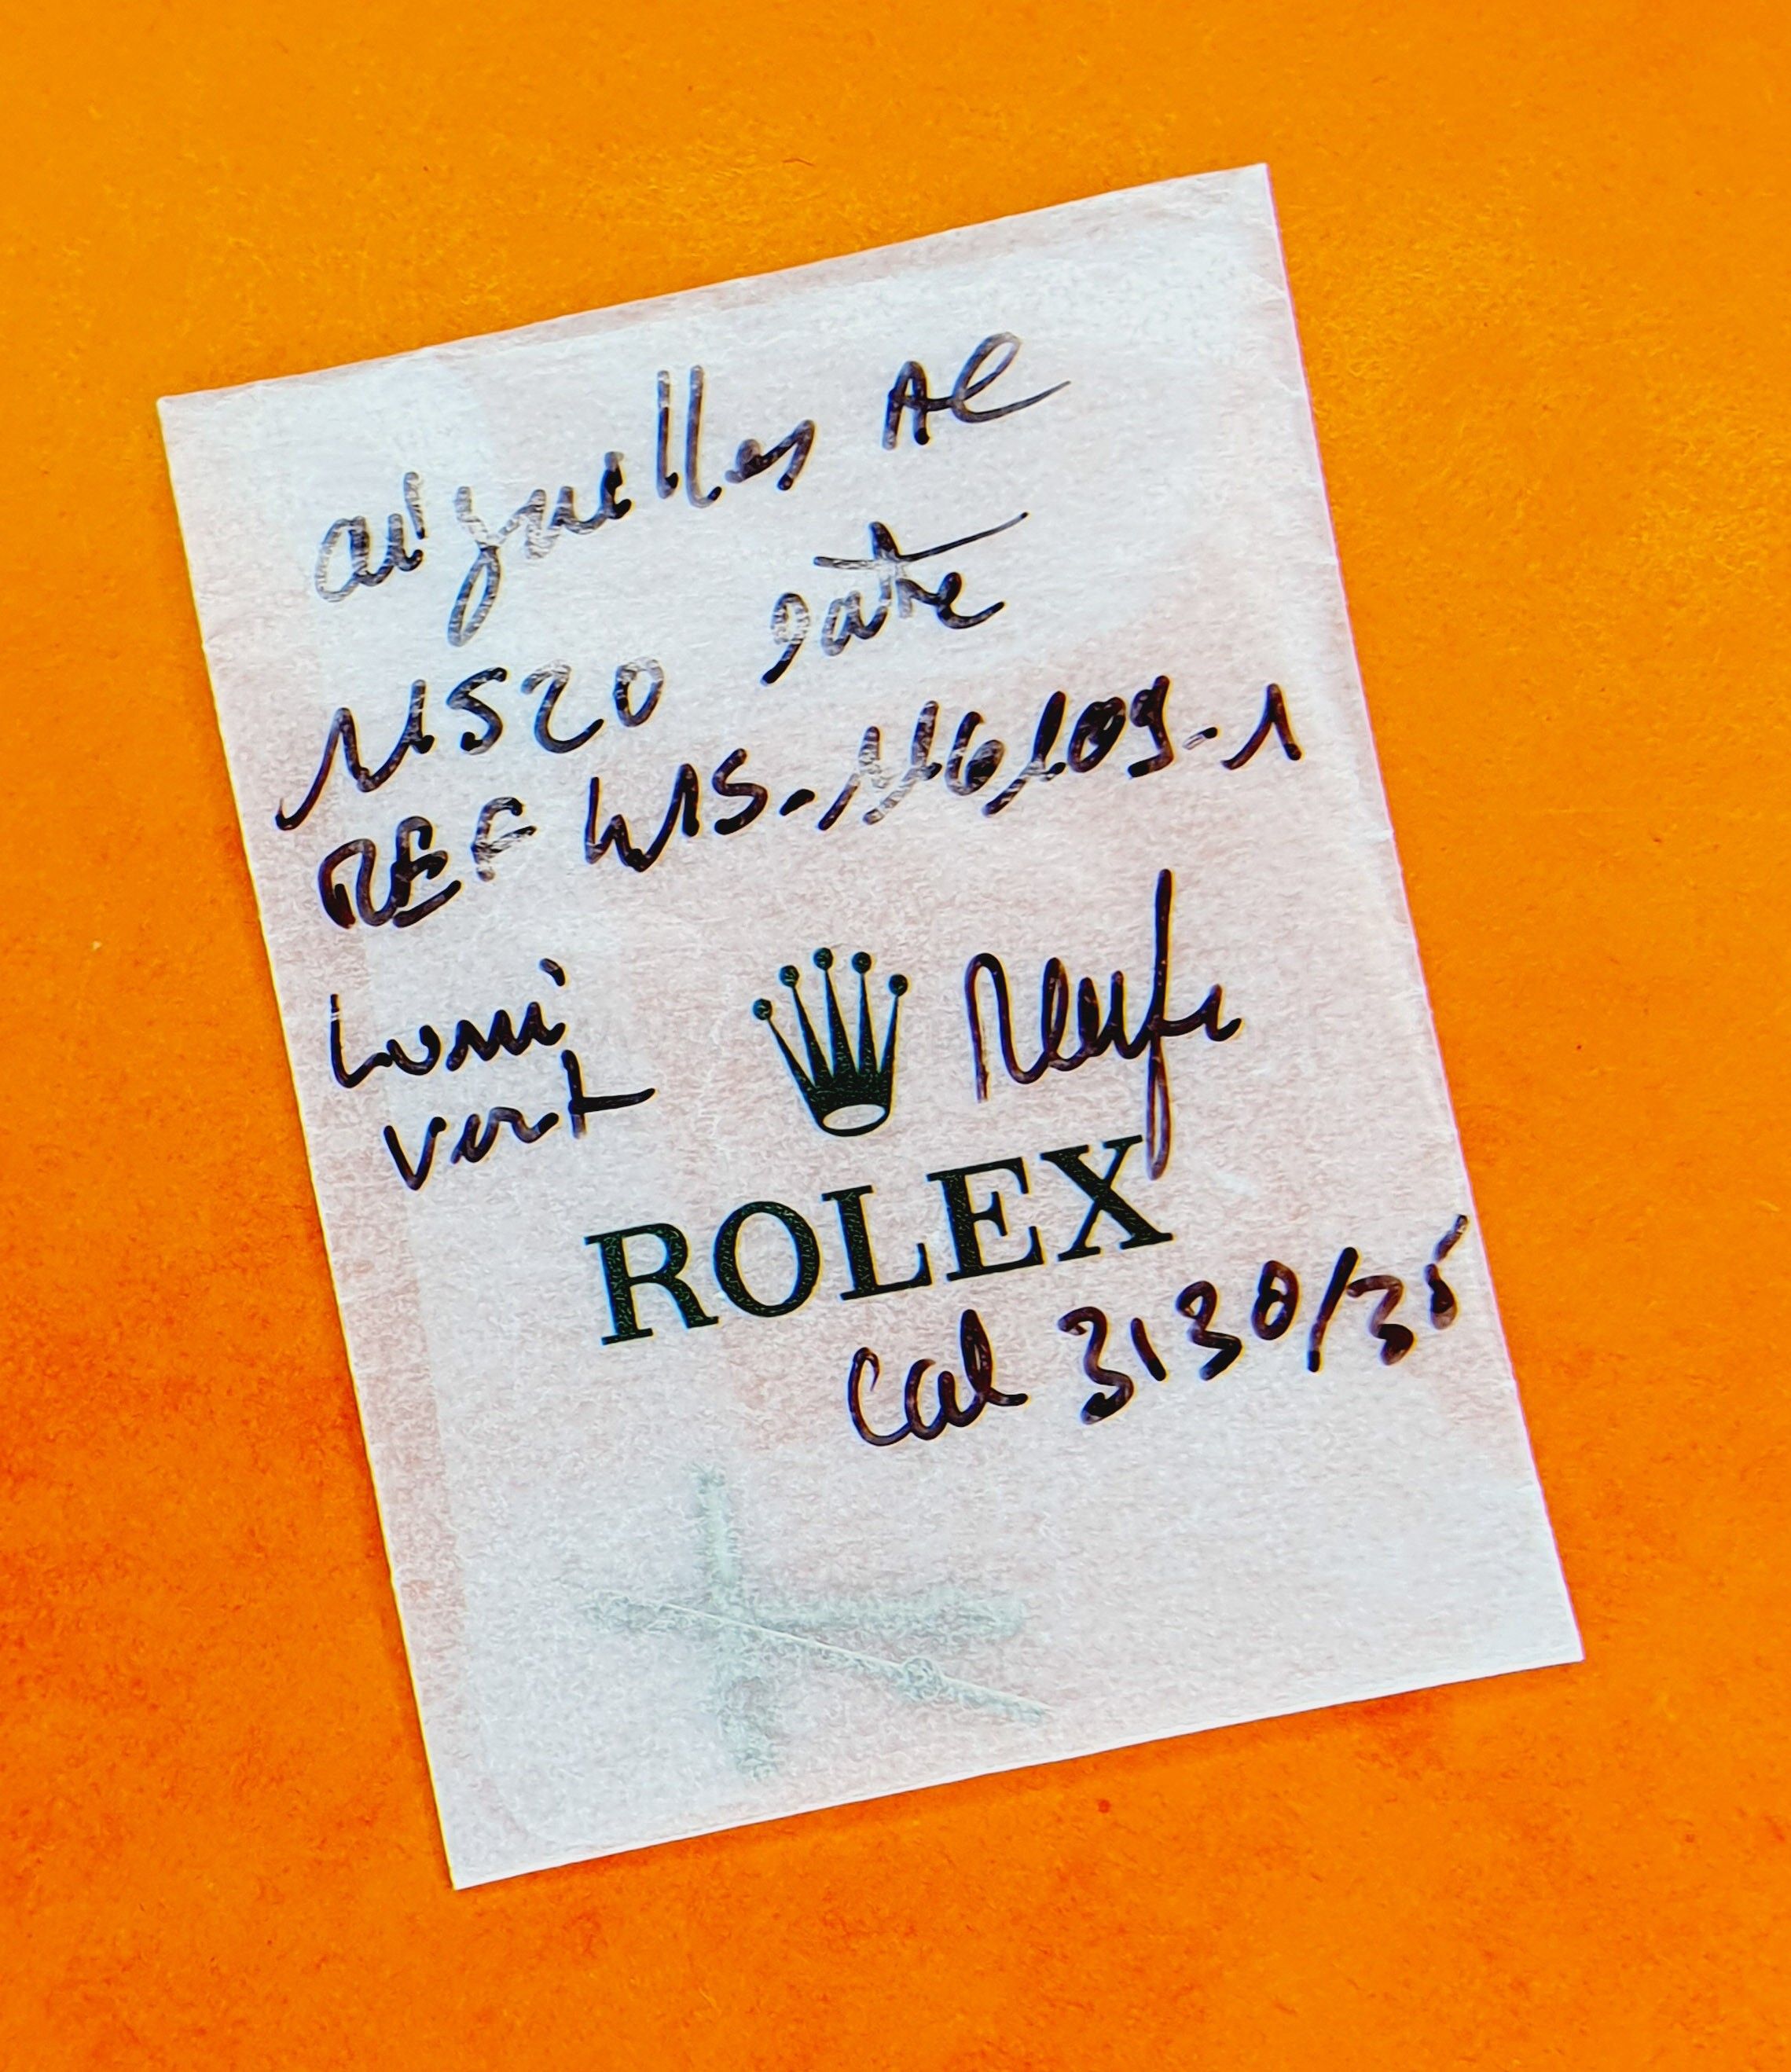 aiguilles AC
11520 Date
REF W15-116109-1
Lumi
vert
Neufs
ROLEX
Cal 3130/35